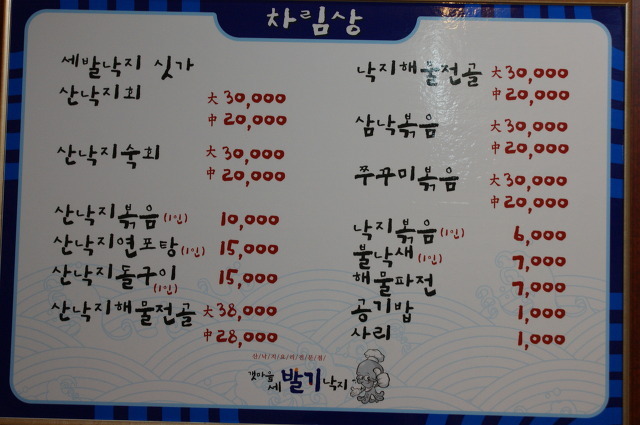 차림상
세발낙지 싯가
산낙지회 大 30,000
中 20,000
산낙지숙회 大 30,000
中 20,000
산낙지볶음(1인) 10,000
산낙지연포탕(1인) 15,000
산낙지돌구이(1인) 15,000
산낙지해물전골 大 38,000
中 28,000
낙지해물전골 大 30,000
中 20,000
삼낙볶음 大 30,000
中 20,000
쭈꾸미볶음 大 30,000
中 20,000
낙지볶음(1인) 6,000
불낙새(1인) 7,000
해물파전 7,000
공기밥 1,000
사리 1,000
산낙지요리전문점
갯마을
세발기낙지